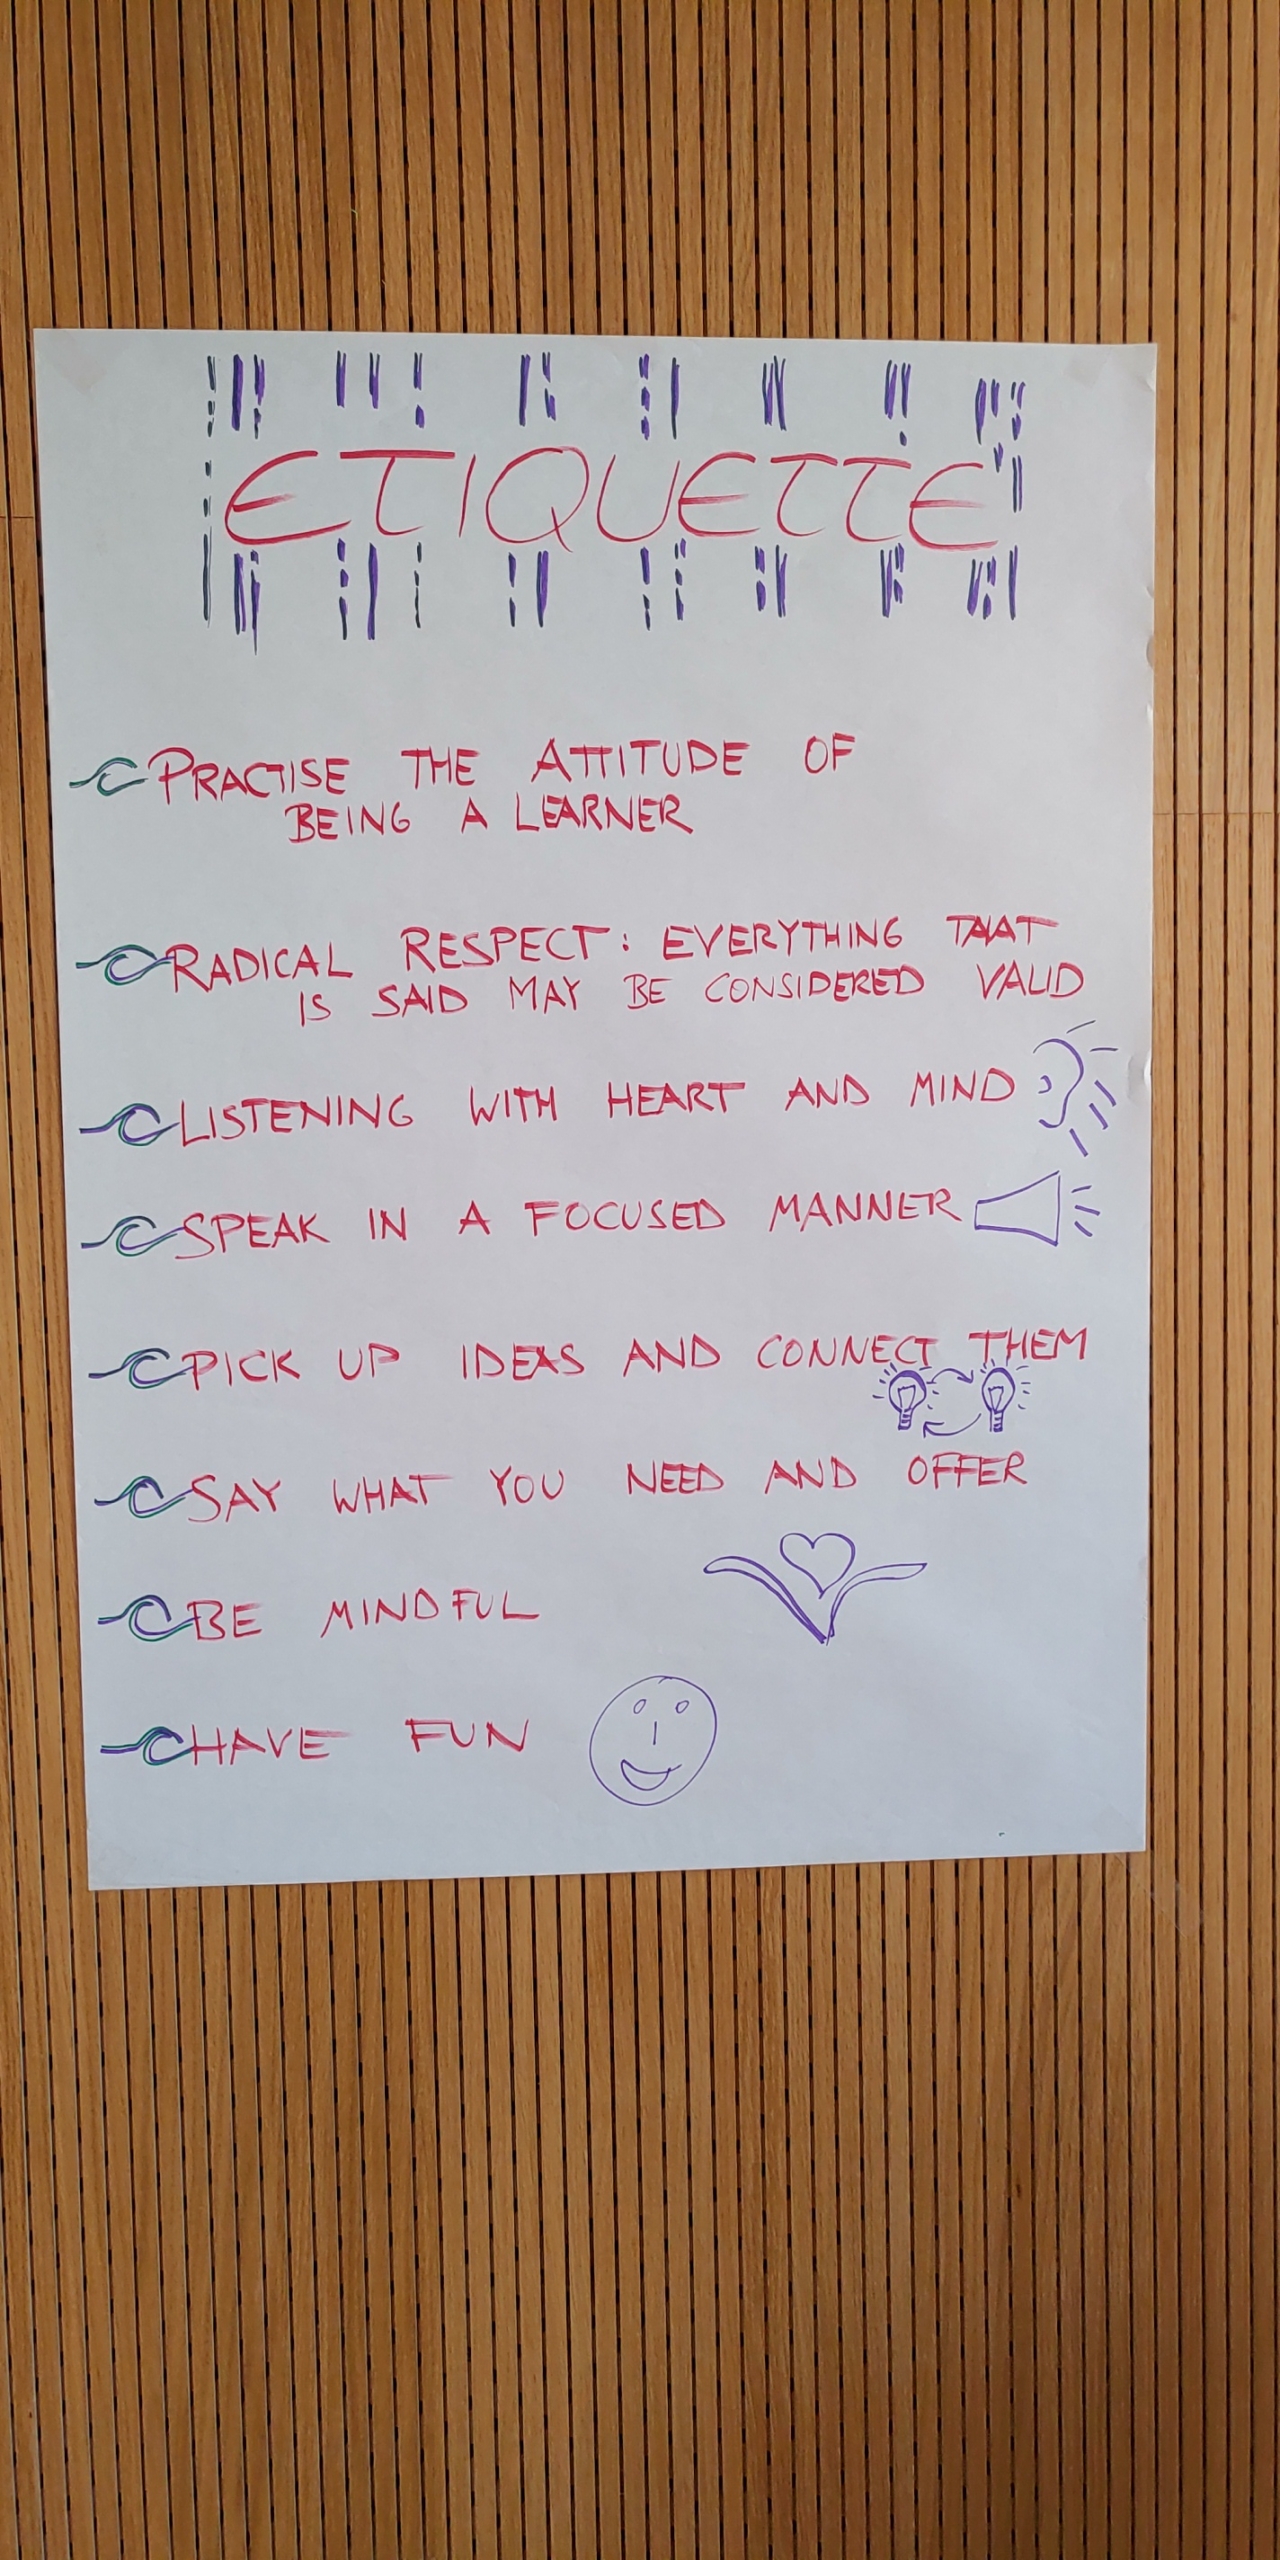 ETIQUETTE
PRACTISE THE ATTITUDE OF
BEING A LEARNER
RADICAL RESPECT: EVERYTHING THAT
IS SAID MAY BE CONSIDERED VALID
LISTENING WITH HEART AND MIND
SPEAK IN A FOCUSED MANNER
PICK UP IDEAS AND CONNECT THEM
SAY WHAT YOU NEED AND OFFER
BE MINDFUL
HAVE FUN